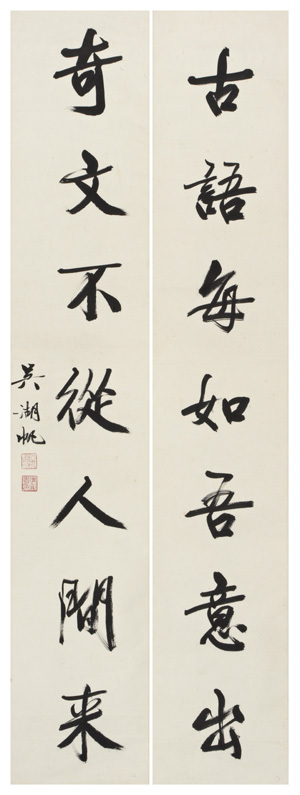 古語每如吾意出
奇文不從人間来
吳湖帆